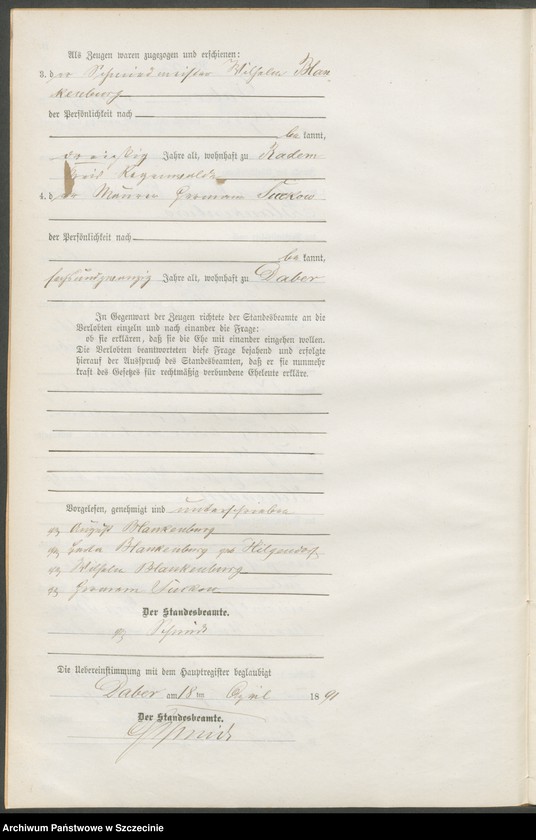 Als Zeugen waren zugezogen und erschienen:
3. der Schmiedmeister Wilhelm Blan
kenburg
der Persönlichkeit nach
be kannt,
dreißig Jahre alt, wohnhaft zu Radem
Kreis Regenwalde
4. der Maurer Hermann Tuckow
der Persönlichkeit nach
be kannt,
sechsundzwanzig Jahre alt, wohnhaft zu Daber
In Gegenwart der Zeugen richtete der Standesbeamte an die
Verlobten einzeln und nach einander die Frage:
ob sie erklären, daß sie die Ehe mit einander eingehen wollen.
Die Verlobten beantworteten diese Frage bejahend und erfolgte
hierauf der Ausspruch des Standesbeamten, daß er sie nunmehr
kraft des Gesetzes für rechtmäßig verbundene Eheleute erkläre.
Vorgelesen, genehmigt und unterschrieben
gez August Blankenburg
gez Blankenburg geb Hilgendorf
gez Wilhelm Blankenburg
gez Hermann Tuckow
Der Standesbeamte.
gez Schmidt
Die Uebereinstimmung mit dem Hauptregister beglaubigt
Daber am 18 ten April 1891
Der Standesbeamte.
Schmidt
Archiwum Państwowe w Szczecinie